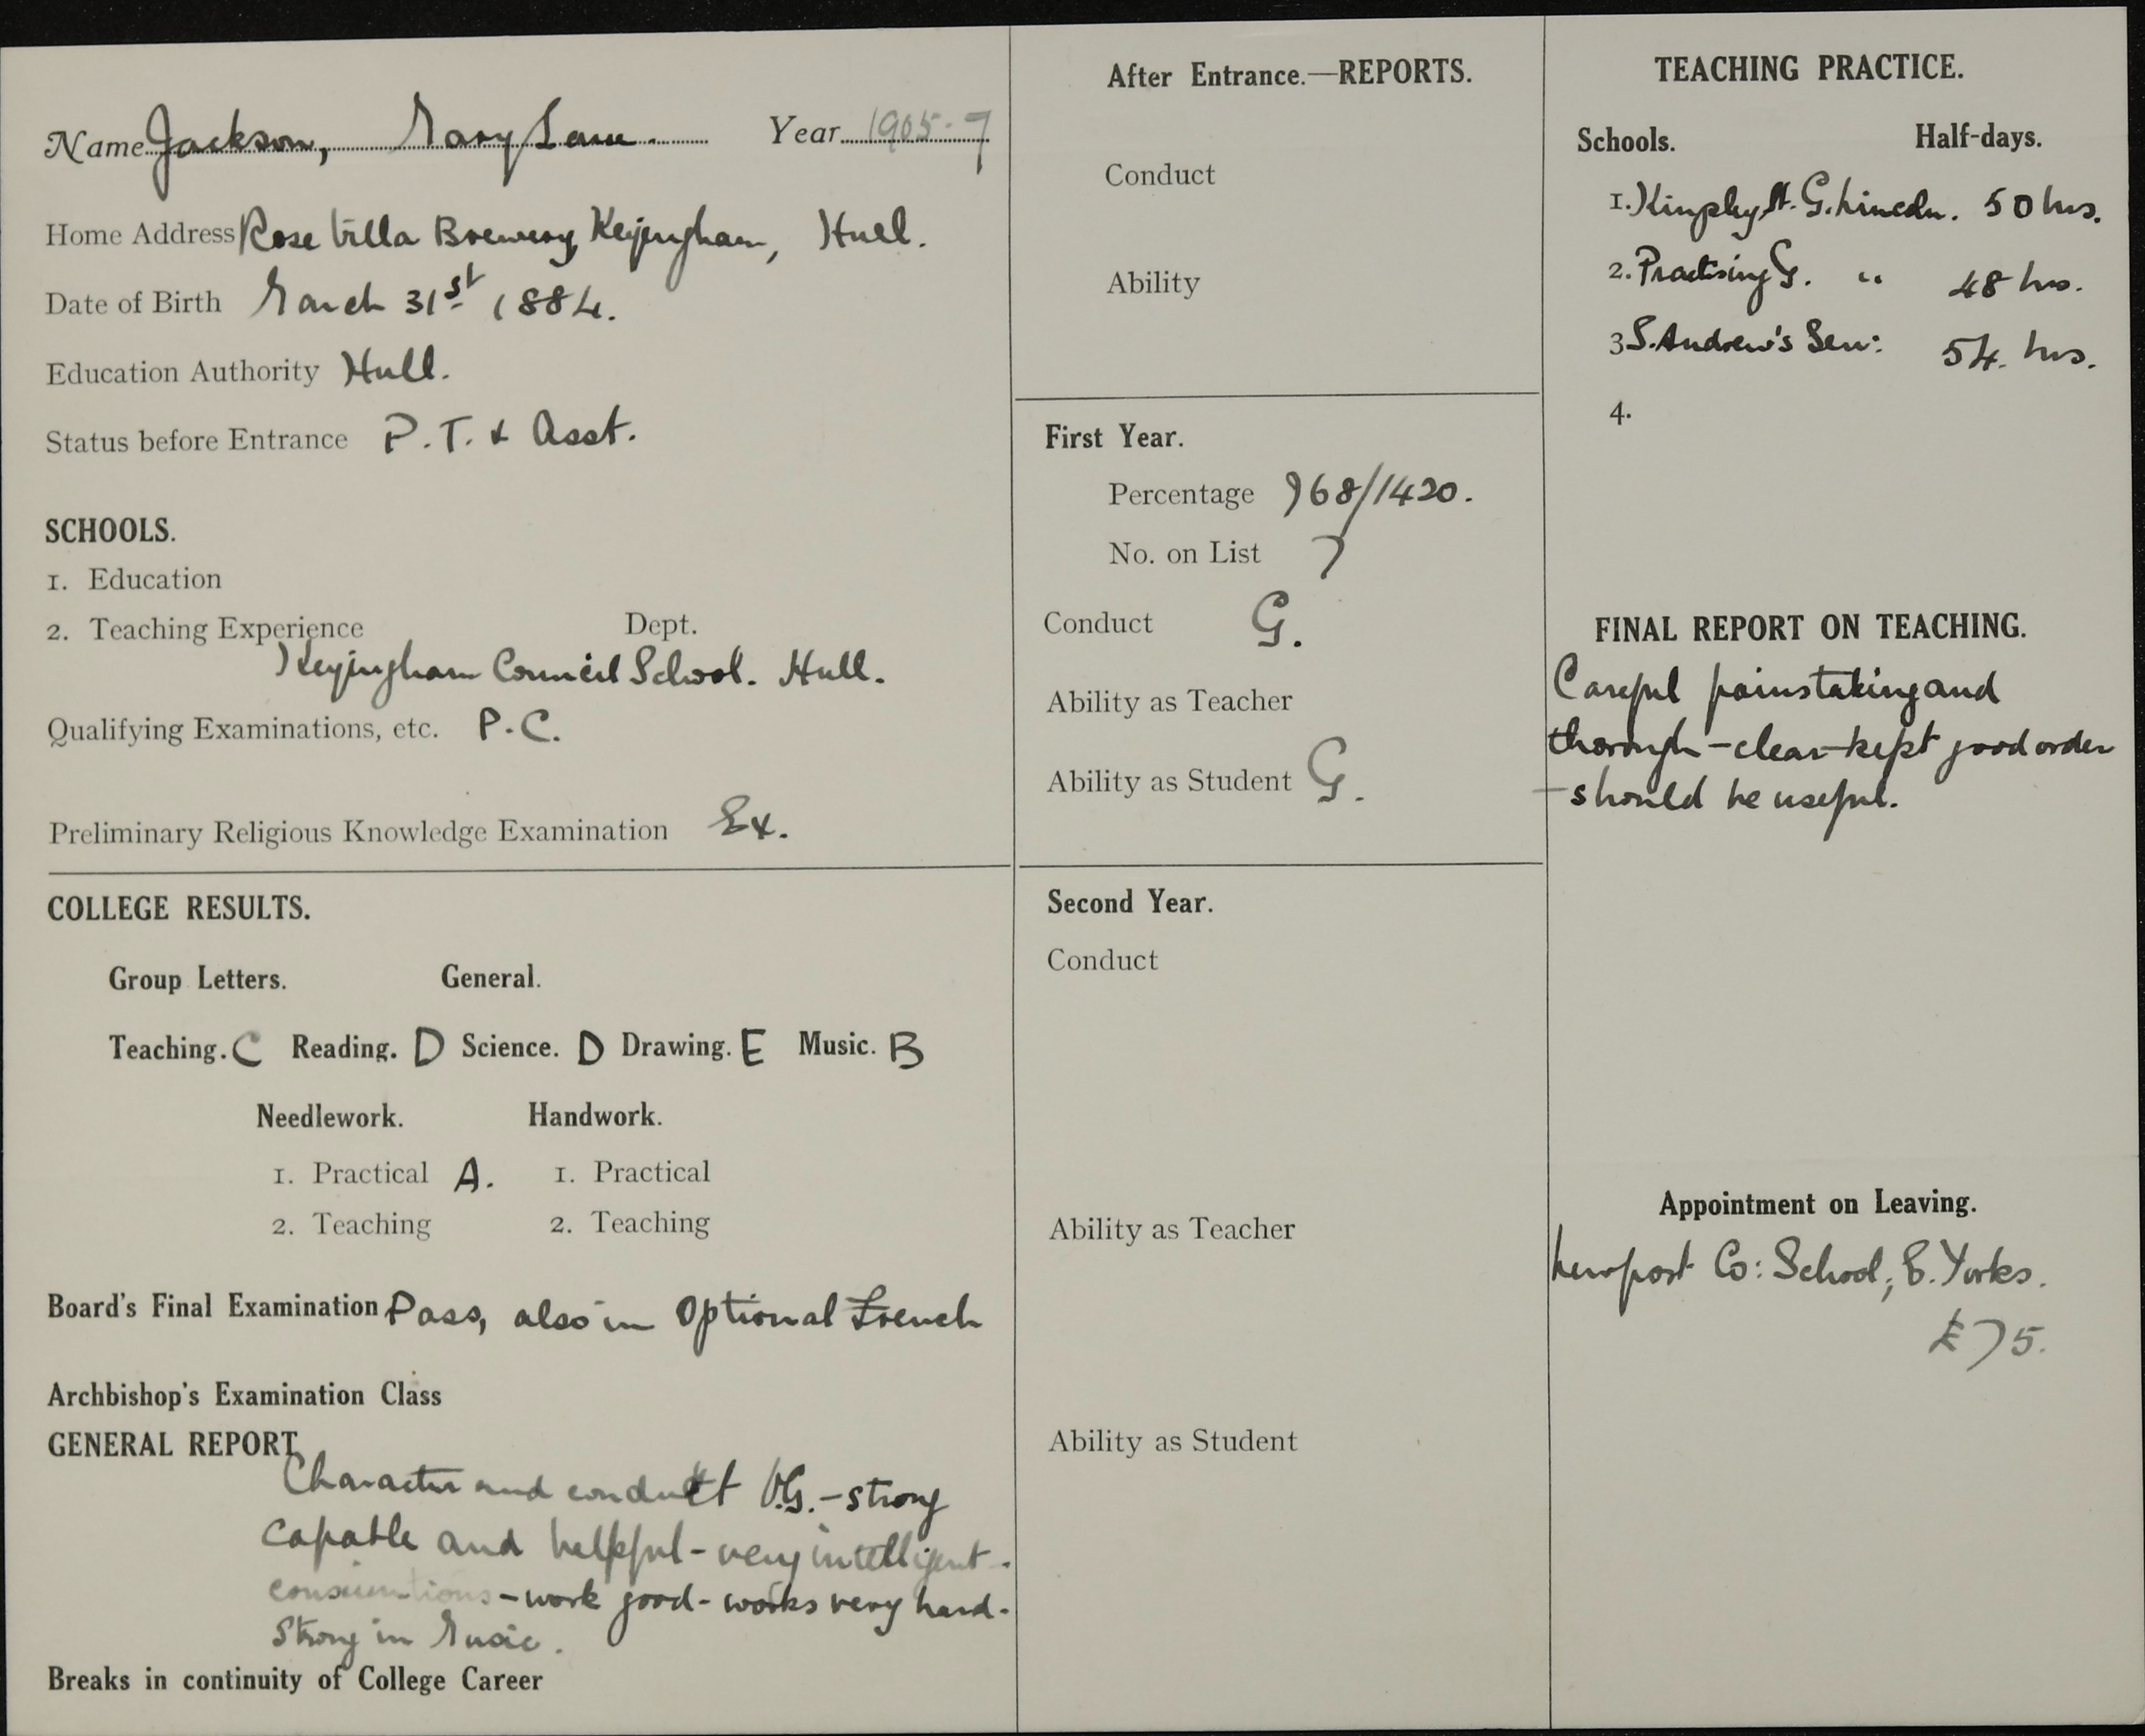 Name Jackson, Mary Jane. Year 1905-7
Home Address Rose Villa Brewery, Keyingham, Hull.
Date of Birth March 31st 1884.
Education Authority Hull.
Status before Entrance P.T. & Asst.
SCHOOLS.
1. Education
2. Teaching Experience Dept.
Keyingham Council School. Hull.
Qualifying Examinations, etc. P.C.
Preliminary Religious Knowledge Examination Ex.
COLLEGE RESULTS.
Group Letters. General.
Teaching. C Reading. D Science. D Drawing. E Music. B
Needlework. Handwork.
1. Practical A. 1. Practical
2. Teaching 2. Teaching
Board's Final Examination Pass, also in Optional French
Archbishop's Examination Class
GENERAL REPORT
Character and conduct V.G. - strong
capable and helpful - very intelligent -
conscientious - work good - works very hard -
Strong in Music.
Breaks in continuity of College Career
After Entrance.—REPORTS.
Conduct
Ability
First Year.
Percentage 768/1420.
No. on List 7
Conduct G.
Ability as Teacher
Ability as Student G.
Second Year.
Conduct
Ability as Teacher
Ability as Student
TEACHING PRACTICE.
Schools. Half-days.
1. St. G. Lincoln. 50 hrs.
2. Practising G. " 48 hrs.
3 S. Andrew's Sen: 54. hrs.
4.
FINAL REPORT ON TEACHING.
Careful painstaking and
thorough - clear - kept good order
- should be useful.
Appointment on Leaving.
Newport Co: School, E. Yorks.
£75.